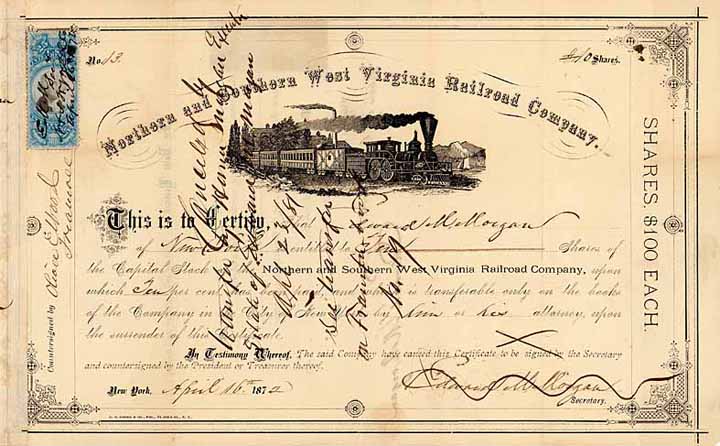 No. 13.
Shares.
Northern and Southern West Virginia Railroad Company.
This is to Certify, that Edward M. Morgan
of New York is entitled to Shares of
the Capital Stock of the Northern and Southern West Virginia Railroad Company, upon
which Ten per cent has been paid and which is transferable only on the books
of the Company in the City of New York by him or his attorney, upon
the surrender of this Certificate.
In Testimony Whereof, The said Company have caused this Certificate to be signed by the Secretary
and countersigned by the President or Treasurer thereof.
New York, April 16th 1872
Edward M. Morgan
Secretary.
SHARES, $100 EACH.
Countersigned by
Treasurer
Cancelled
Transfer
Estate of Morgan
Apl 2/81
See transfer
on Transfer Book